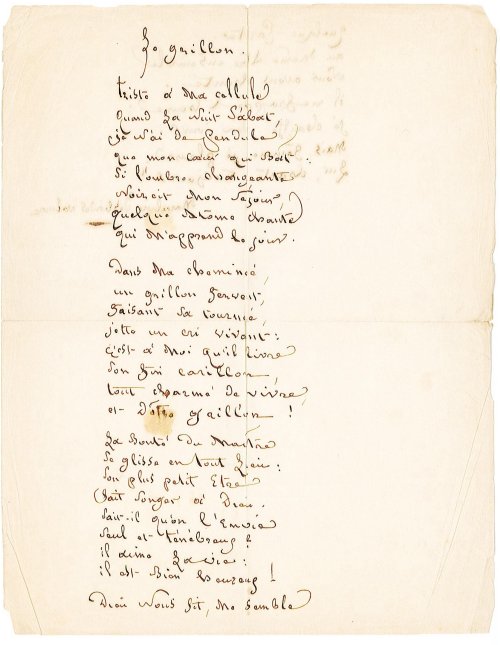 Le grillon.
triste à ma cellule
quand la nuit s'abat,
je n'ai de pendule
que mon cœur qui bat :
si l'ombre changeante
noircit mon séjour,
quelque atome chante
qui m'apprend le jour.
Dans ma cheminée,
un grillon fervent,
faisant sa tournée,
jette un cri vivant :
c'est à moi qu'il livre
son fin carillon
tout charmé de vivre
et d'être grillon !
La bonté du Maître
se glisse en tout lieu :
son plus petit être
fait songer à Dieu.
sait-il qu'on l'envie
seul et ténébreux ?
il aime la vie :
il est bien heureux !
Dieu nous fit, me semble